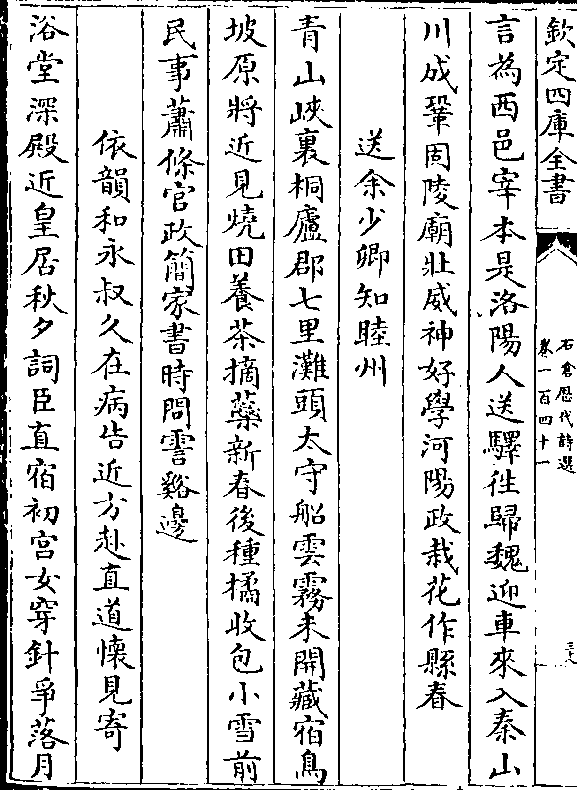 欽定四庫全書
石倉歴代詩選
卷一百四十一
言為西邑宰本是洛陽人送驛徃歸魏迎車來入秦山
川成鞏固陵廟壯威神好學河陽政栽花作縣春
送余少卿知睦州
青山峽裏桐廬郡七里灘頭太守船雲霧未開藏宿鳥
坡原將近見燒田養茶摘藥新春後種橘收包小雪前
民事蕭條官政簡家書時問霅谿邊
依韻和永叔久在病告近方赴直道懐見寄
浴堂深殿近皇居秋夕詞臣直宿初宫女穿針爭落月